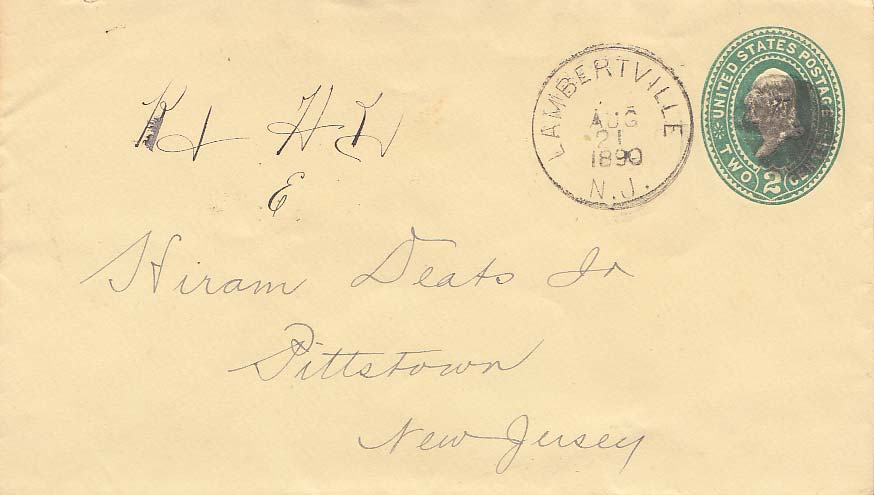 LAMBERTVILLE
AUG
21
1890
N.J.
UNITED STATES POSTAGE
TWO 2
H L
E
Hiram Deats Jr
Pittstown
New Jersey